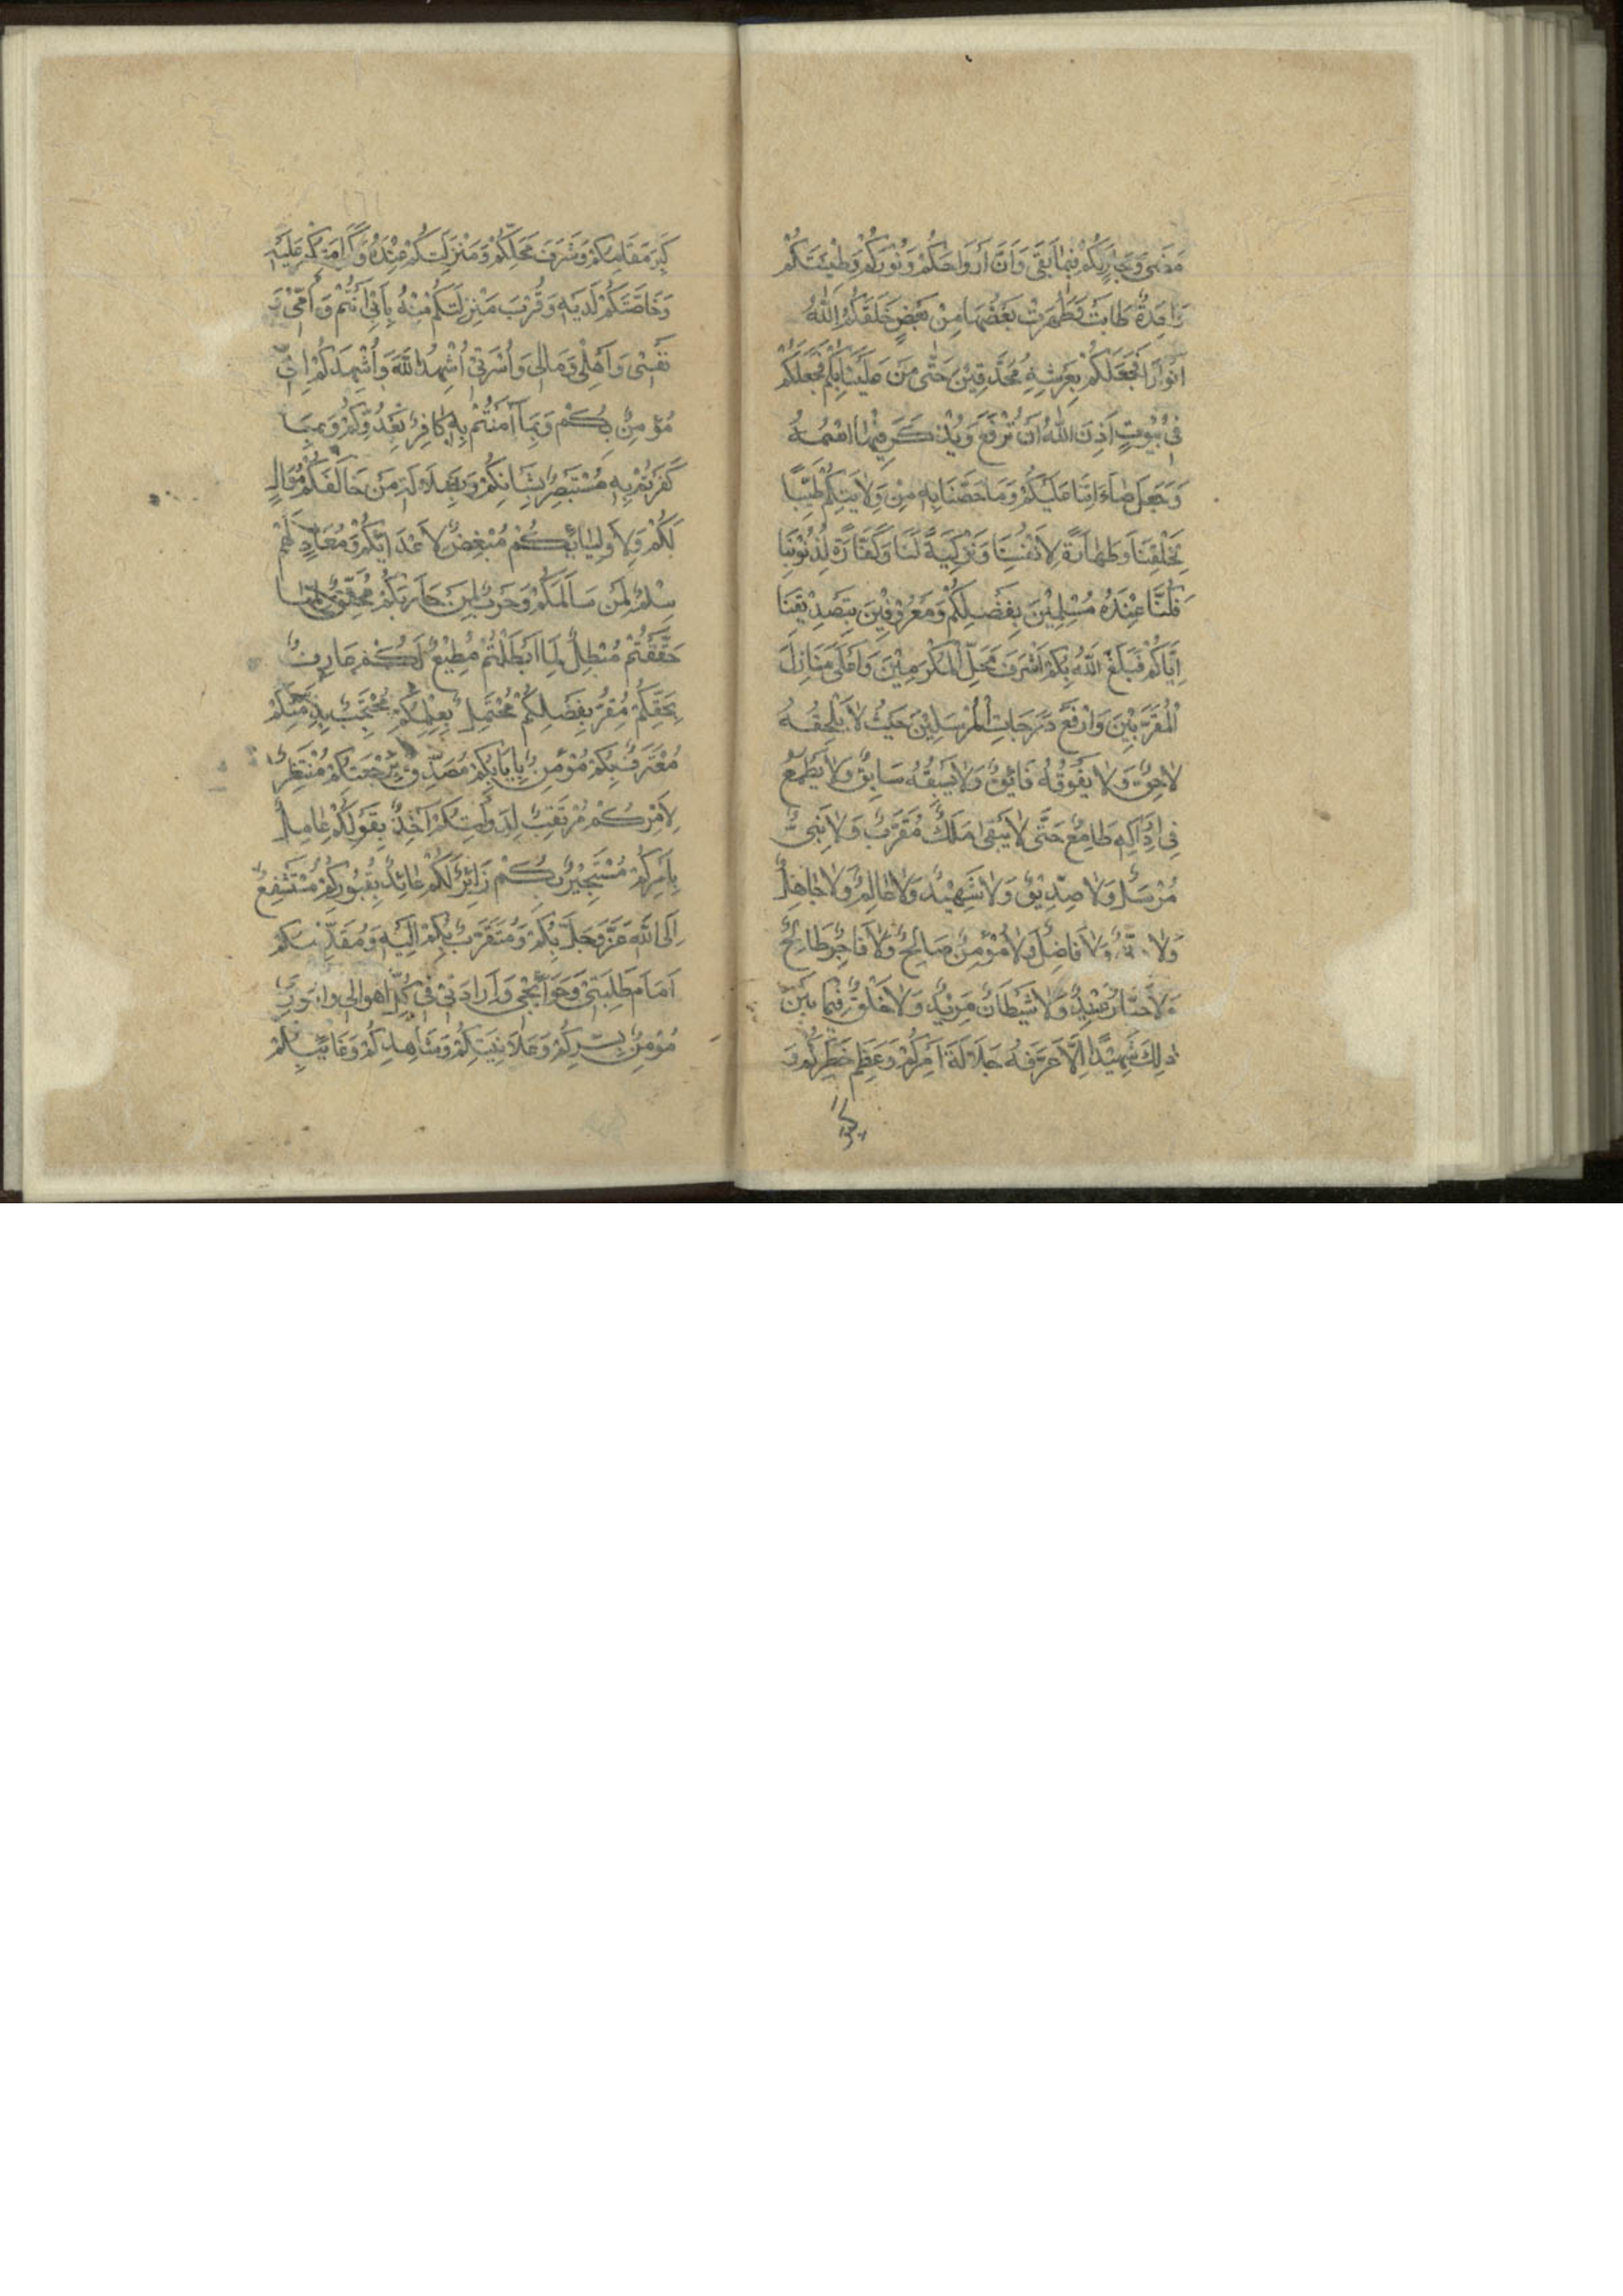 مَضىٰ وَجٰارٍ لَكُمْ فيمٰا بَقِيَ وَاَنَّ اَرْوٰاحَكُمْ وَنُوْرَكُمْ وَطِيْنَتَكُمْ
وٰاحِدَةٌ طٰابَتْ وَطَهُرَتْ بَعْضُهٰا مِنْ بَعْضٍ خَلَقَكُمُ اللّٰهُ
اَنْوٰارًا فَجَعَلَكُمْ بِعَرْشِهِ مُحْدِقِيْنَ حَتّٰى مَنَّ عَلَيْنٰا بِكُمْ فَجَعَلَكُمْ
فِيْ بُيُوْتٍ اَذِنَ اللّٰهُ اَنْ تُرْفَعَ وَيُذْكَرَ فِيْهَا اسْمُهُ
وَجَعَلَ صَلَاتَنٰا عَلَيْكُمْ وَمٰا خَصَّنٰا بِهِ مِنْ وِلٰايَتِكُمْ طِيْبًا
لِخَلْقِنٰا وَطَهٰارَةً لِاَنْفُسِنٰا وَتَزْكِيَةً لَنٰا وَكَفّٰارَةً لِذُنُوْبِنٰا
فَكُنّٰا عِنْدَهُ مُسْلِمِيْنَ بِفَضْلِكُمْ وَمَعْرُوْفِيْنَ بِتَصْدِيْقِنٰا
اِيّٰاكُمْ فَبَلَغَ اللّٰهُ بِكُمْ اَشْرَفَ مَحَلِّ الْمُكَرَّمِيْنَ وَاَعْلٰى مَنٰازِلَ
الْمُقَرَّبِيْنَ وَاَرْفَعَ دَرَجٰاتِ الْمُرْسَلِيْنَ حَيْثُ لٰا يَلْحَقُهُ
لٰاحِقٌ وَلٰا يَفُوْقُهُ فٰائِقٌ وَلٰا يَسْبِقُهُ سٰابِقٌ وَلٰا يَطْمَعُ
فِي اِدْرٰاكِهِ طٰامِعٌ حَتّٰى لٰا يَبْقٰى مَلَكٌ مُقَرَّبٌ وَلٰا نَبِيٌّ
مُرْسَلٌ وَلٰا صِدِّيْقٌ وَلٰا شَهِيْدٌ وَلٰا عٰالِمٌ وَلٰا جٰاهِلٌ
وَلٰا وَلٰا فٰاضِلٌ وَلٰا مُؤْمِنٌ صٰالِحٌ وَلٰا فٰاجِرٌ طٰالِحٌ
وَلٰا جَبّٰارٌ عَنِيْدٌ وَلٰا شَيْطٰانٌ مَرِيْدٌ وَلٰا خَلْقٌ فِيْمٰا بَيْنَ
ذٰلِكَ شَهِيْدًا اِلّٰا عَرَّفَهُ جَلٰالَةَ اَمْرِكُمْ وَعِظَمَ خَطَرِكُمْ وَ
كِبَرَ
كِبَرَ مَقٰامِكُمْ وَشَرَفَ مَحَلِّكُمْ وَمَنْزِلَتِكُمْ عِنْدَهُ وَكَرٰامَتَكُمْ عَلَيْهِ
وَخٰاصَّتَكُمْ لَدَيْهِ وَقُرْبَ مَنْزِلَتِكُمْ مِنْهُ بِاَبِيْ اَنْتُمْ وَاُمِّيْ وَ
نَفْسِيْ وَاَهْلِيْ وَمٰالِيْ وَاُسْرَتِيْ اُشْهِدُ اللّٰهَ وَاُشْهِدُكُمْ اِنِّيْ
مُؤْمِنٌ بِكُمْ وَبِمٰا اٰمَنْتُمْ بِهِ كٰافِرٌ بِعَدُوِّكُمْ وَبِمٰا
كَفَرْتُمْ بِهِ مُسْتَبْصِرٌ بِشَأْنِكُمْ وَبِضَلٰالَةِ مَنْ خٰالَفَكُمْ مُوٰالٍ
لَكُمْ وَلِاَوْلِيٰائِكُمْ مُبْغِضٌ لِاَعْدٰائِكُمْ وَمُعٰادٍ لَهُمْ
سِلْمٌ لِمَنْ سٰالَمَكُمْ وَحَرْبٌ لِمَنْ حٰارَبَكُمْ مُحَقِّقٌ لِمٰا
حَقَّقْتُمْ مُبْطِلٌ لِمٰا اَبْطَلْتُمْ مُطِيْعٌ لَكُمْ عٰارِفٌ
بِحَقِّكُمْ مُقِرٌّ بِفَضْلِكُمْ مُحْتَمِلٌ بِعِلْمِكُمْ مُحْتَجِبٌ بِذِمَّتِكُمْ
مُعْتَرِفٌ بِكُمْ مُؤْمِنٌ بِاِيٰابِكُمْ مُصَدِّقٌ بِرَجْعَتِكُمْ مُنْتَظِرٌ
لِاَمْرِكُمْ مُرْتَقِبٌ لِدَوْلَتِكُمْ اٰخِذٌ بِقَوْلِكُمْ عٰامِلٌ
بِاَمْرِكُمْ مُسْتَجِيْرٌ بِكُمْ زٰائِرٌ لَكُمْ عٰائِذٌ بِقُبُوْرِكُمْ مُسْتَشْفِعٌ
اِلَى اللّٰهِ عَزَّ وَجَلَّ بِكُمْ وَمُتَقَرِّبٌ بِكُمْ اِلَيْهِ وَمُقَدِّمُكُمْ
اَمٰامَ طَلِبَتِيْ وَحَوٰائِجِيْ وَاِرٰادَتِيْ فِيْ كُلِّ اَحْوٰالِيْ وَاُمُوْرِيْ
مُؤْمِنٌ بِسِرِّكُمْ وَعَلٰانِيَتِكُمْ وَشٰاهِدِكُمْ وَغٰائِبِكُمْ